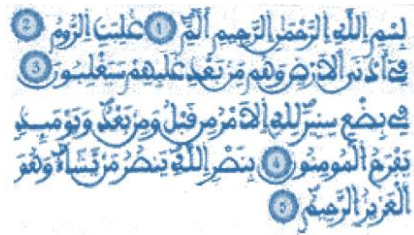 بسم الله الرحمن الرحيم ألم ① غلبت الروم ②
في أدنى الأرض وهم من بعد غلبهم سيغلبون ③
في بضع سنين لله الأمر من قبل ومن بعد ويومئذ
يفرح المؤمنون ④ بنصر الله ينصر من يشاء وهو
العزيز الرحيم ⑤